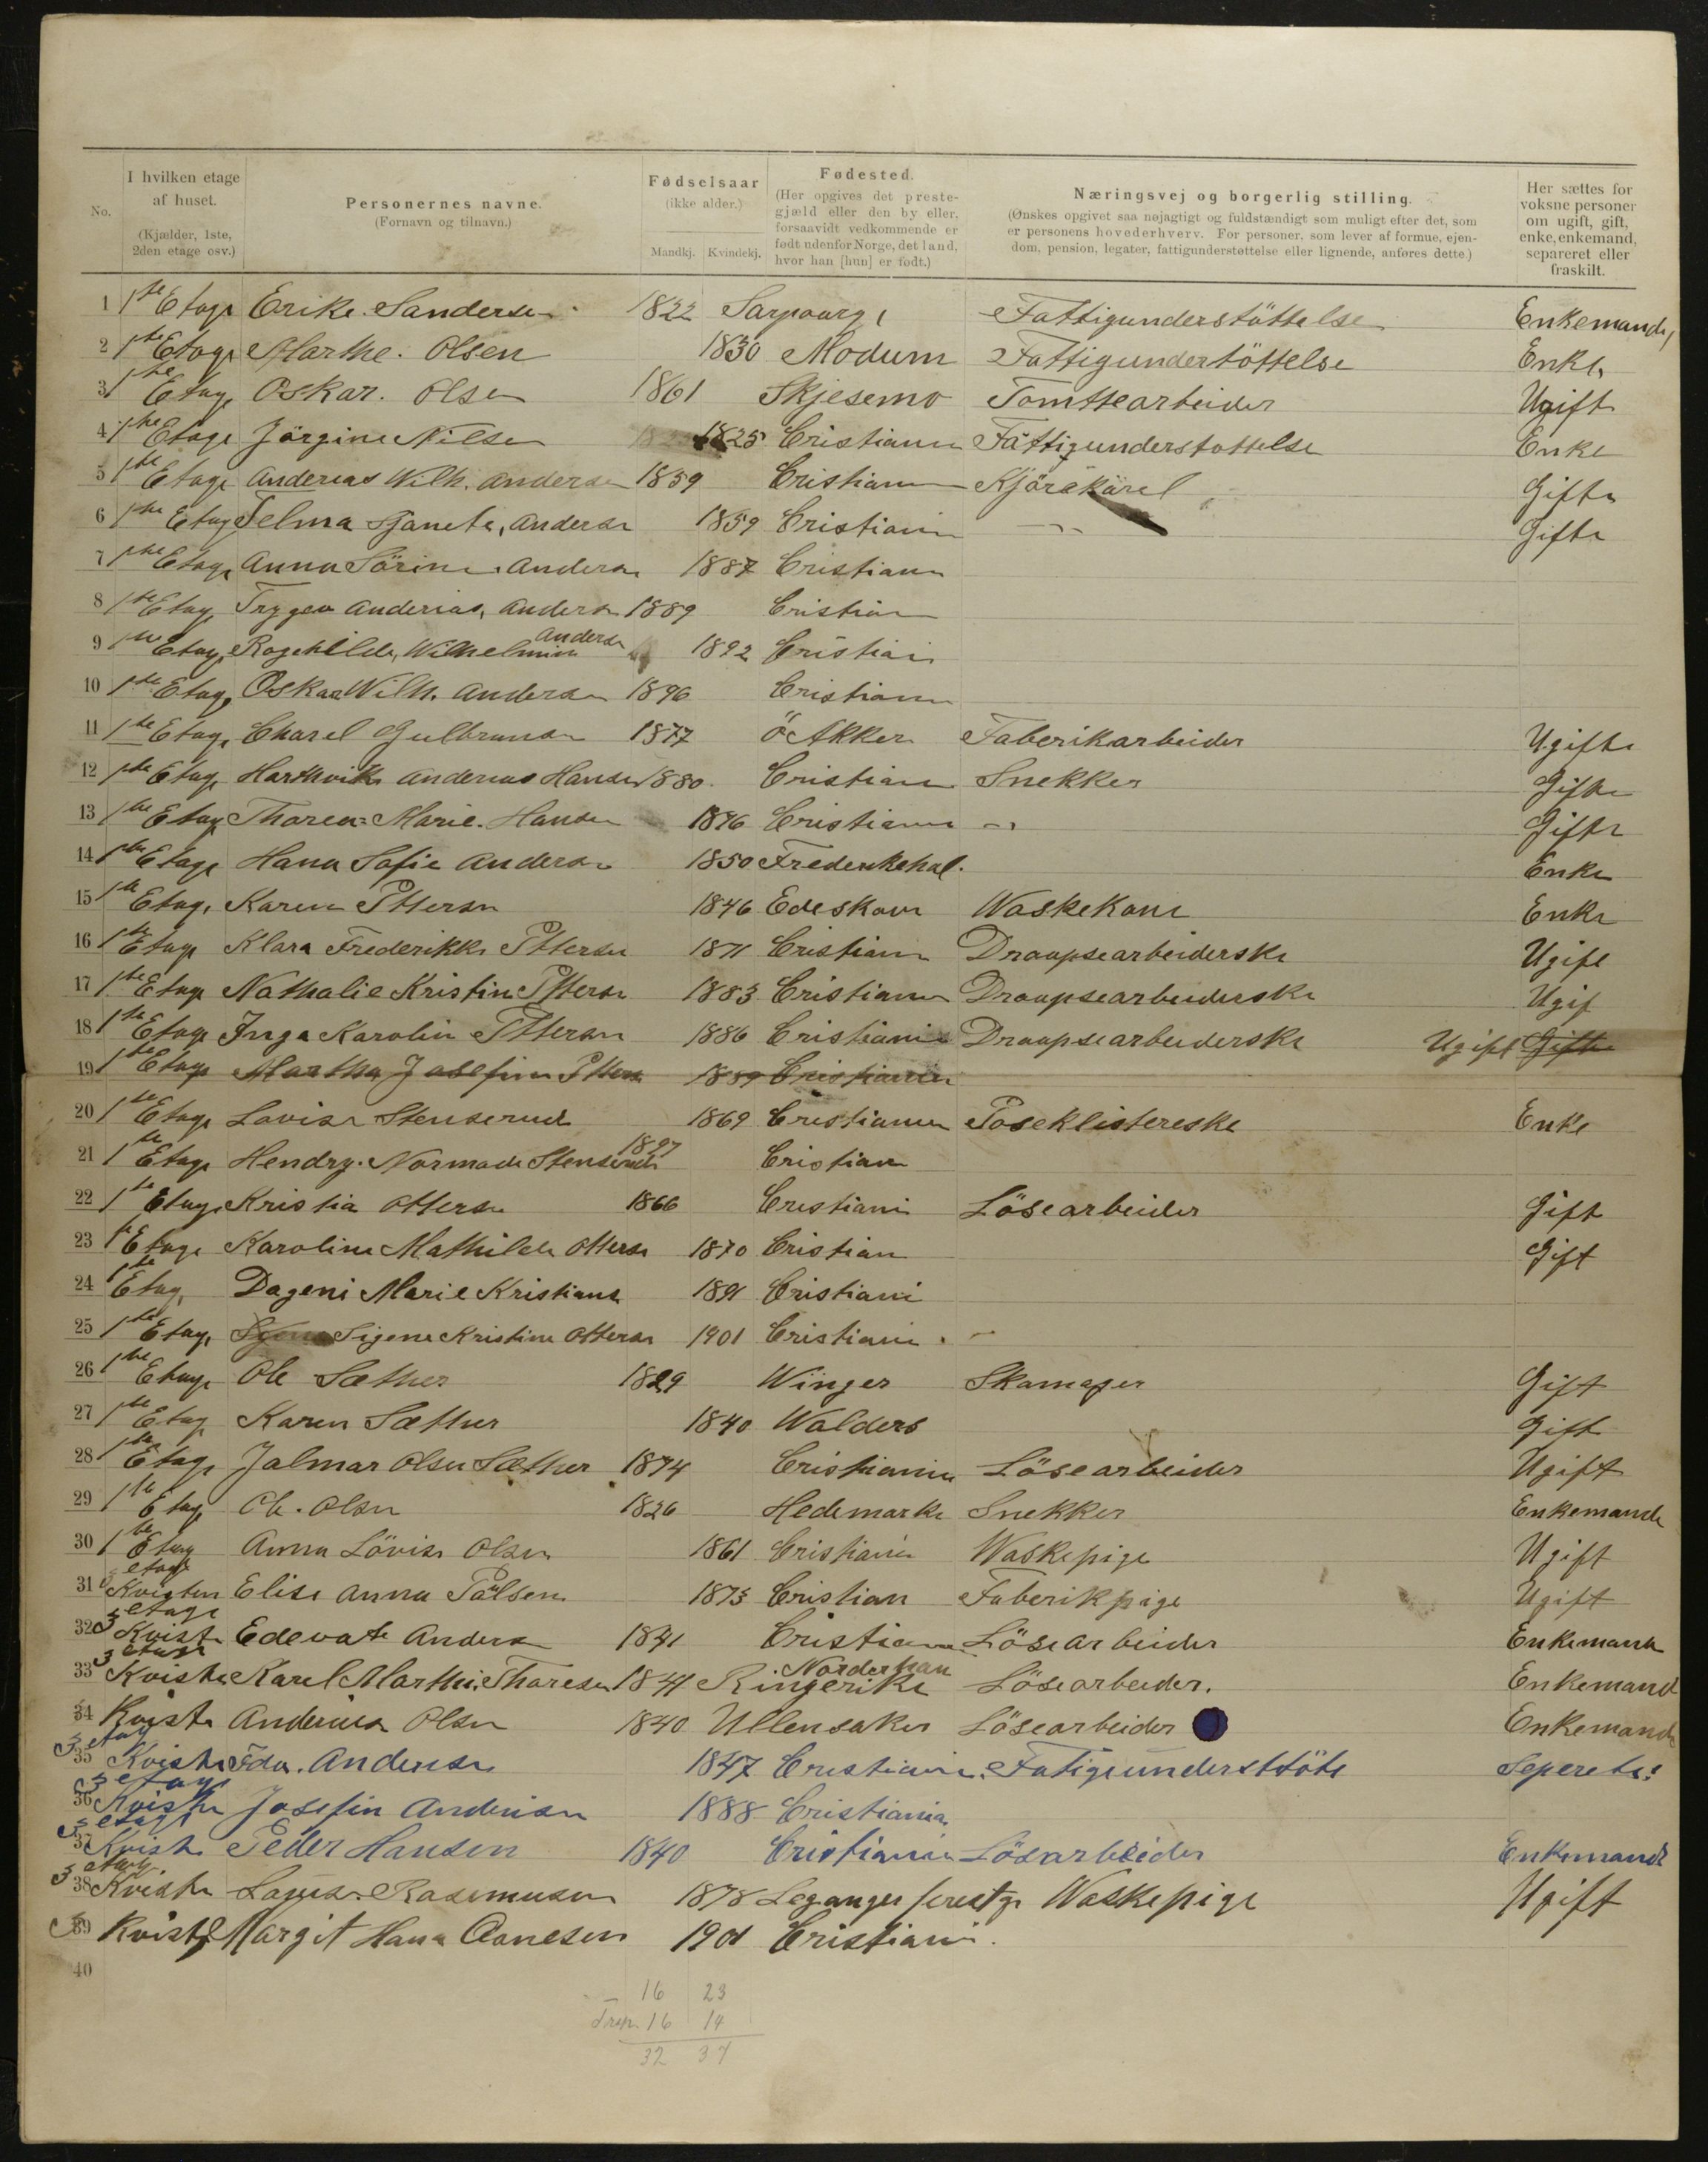 No.
I hvilken etage af huset. (Kjælder, 1ste, 2den etage osv.)
Personernes navne. (Fornavn og tilnavn.)
Fødselsaar (ikke alder.) Mandkj. Kvindekj.
Fødested. (Her opgives det prestegjæld eller den by eller, forsaavidt vedkommende er født udenfor Norge, det land, hvor han [hun] er født.)
Næringsvej og borgerlig stilling. (Ønskes opgivet saa nøjagtigt og fuldstændigt som muligt efter det, som er personens hovederhverv. For personer, som lever af formue, ejendom, pension, legater, fattigunderstøttelse eller lignende, anføres dette.)
Her sættes for voksne personer om ugift, gift, enke, enkemand, separeret eller fraskilt.
1 1ste Etage Erike Sandersen 1822 Sarpourg Fattigunderstöttelse Enkemand
2 1ste Etage Marthe. Olsen 1830 Modum Fattigundertöttelse Enke
3 1ste Etage Oskar. Olsen 1861 Skjesemo Tomttearbeider Ugift
4 1ste Etage Jörgine Nilsen 1825 Cristiania Fattigunderstottelse Enke
5 1ste Etage Andereas Wilh. Andersen 1859 Cristiania Kjörekarel Gifte
6 1ste Etage Telma Janete, Andersen 1859 Cristiania -"- Gifte
7 1ste Etage Anna Sörine Andersen 1887 Cristiania
8 1ste Etage Tryggva Anderias, Andersen 1889 Cristian
9 1ste Etage Ragehilde, Wilhelmine Andersen 1892 Cristian
10 1ste Etage Oskar Wilh. Andersen 1896 Cristiania
11 1ste Etage Charel Gulbransen 1877 ö Akker Faberikarbeider Ugifte
12 1ste Etage Harthvik Anderias Hansen 1880. Cristiania Snekker Gifte
13 1ste Etage Tharea Marie. Hansen 1876 Cristiania -"- Gifte
14 1ste Etage Hana Sofie Andersen 1850 Frederikehal. Enke
15 1ste Etage Karen Pttersen 1846 Edeskow Waskekone Enke
16 1ste Etage Klara Frederikke Pttersen 1871 Cristiania Draapsearbeiderske Ugift
17 1ste Etage Nathalie Kristine Pttersen 1883 Cristiania Draapsearbeiderske Ugif
18 1ste Etage Inga Karolin Pttersen 1886 Cristiania Draapsearbeiderske Ugift Gifte
19 1ste Etage Martha Josefine Pttersen 1889 Cristiania
20 1ste Etage Lovise Stenserud 1869 Cristiania Poseklistereske Enke
21 1ste Etage Hendry. Normade Stenserud 1897 Cristian
22 1ste Etage Kristia Ottersen 1866 Cristiani Lösearbeider Gift
23 1ste Etage Karoline Mathilde Ottersen 1870 Cristian Gift
24 1ste Etage Dageni Marie Kristiansen 1891 Cristiani
25 1ste Etage Sigene Kristine Ottersen 1901 Cristiani
26 1ste Etage Ole Sæther 1829 Winger Skamager Gift
27 1ste Etage Karen Sæther 1840 Walders Gift
28 1ste Etage Jalmar Olsen Sæther 1874 Cristiania Lösearbeider Ugift
29 1ste Etage Ole. Olsen 1826 Hedemarke Snekker Enkemand
30 1ste Etage Anna Lövise Olsen 1861 Cristiania Waskepige Ugift
31 etage Kvisten Elise Anna Palsen 1873 Cristian Faberikpige Ugift
32 3 etage Kviste Edevate Andersen 1841 Cristiania Lösearbeider Enkemand
33 3 etage Kviste Karel Marthi. Tharesen 1841 Norderhau Ringerike Lösearbeider. Enkemand
34 Kviste Anderias Olsen 1840 Ullensaker Lösearbeider Enkemand
35 3 etag Kviste Ida. Andersen 1847 Cristiania. Fatigeunderstöte Seperete
36 3 etage Kviste Josefin Andersen 1888 Cristiania
37 3 etage Kviste Peder Hansen 1840 Cristiania Lösarbeider Enkemand
38 3 etag. Kviste Lovise. Rasemusen 1878 Leganger prestg Waskepige Ugift
39 Kviste Margit Hana Aanesen 1901 Cristiani.
40
16 23
Trsp. 16 14
32 37